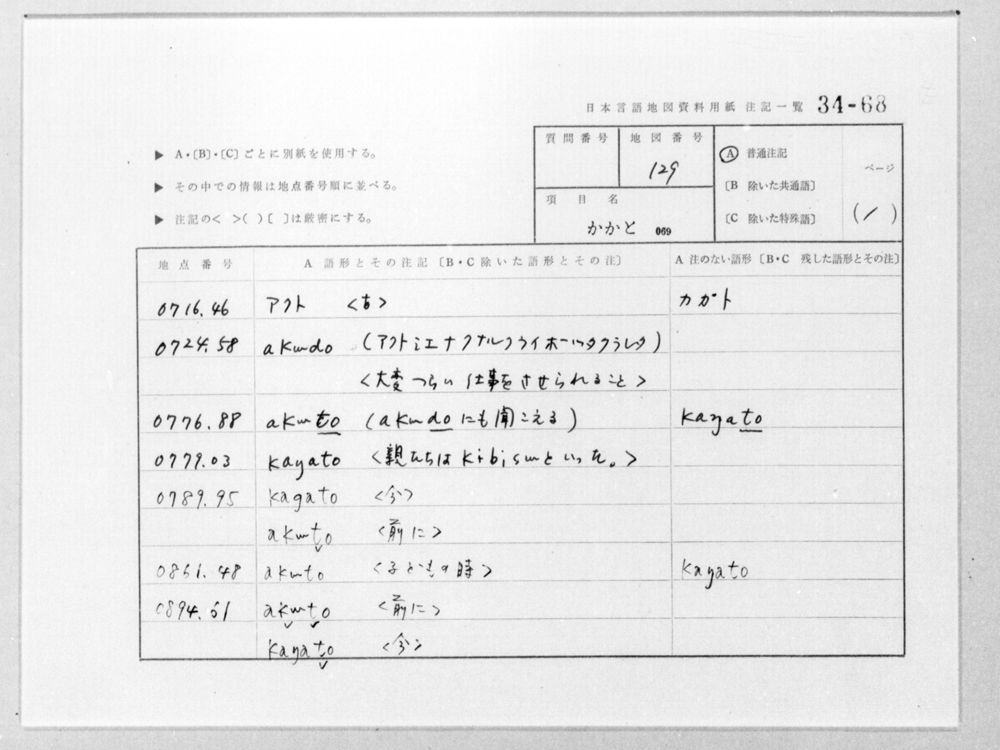 日本言語地図資料用紙 注記一覧 34-68
▶ A・〔B〕・〔C〕ごとに別紙を使用する。
▶ その中での情報は地点番号順に並べる。
▶ 注記の< >( )[ ]は厳密にする。
質問番号 地図番号 129
項目名 かかと 069
Ⓐ 普通注記
〔B 除いた共通語〕
〔C 除いた特殊語〕
ページ
(1)
地点番号 A 語形とその注記〔B・C 除いた語形とその注〕 A 注のない語形〔B・C 残した語形とその注〕
0716.46 アクト <古> カガト
0724.58 akɯdo (アクトミエナクナルクライホーハタクラレタ)
<大変つらい仕事をさせられること>
0776.88 akɯto (akɯdoにも聞こえる) kaŋato
0779.03 kaŋato <親たちはkibisɯといった。>
0789.95 kagato <今>
akɯto <前に>
0861.48 akɯto <子どもの時> kaŋato
0894.61 akɯto <前に>
kaŋato <今>